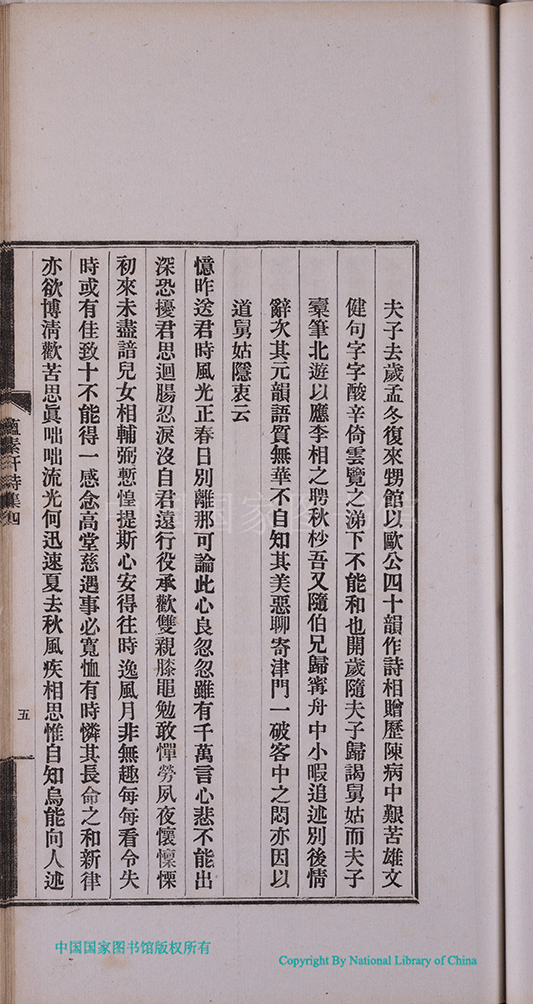 夫子去歲孟冬復來甥館以歐公四十韻作詩相贈歷陳病中艱苦雄文
健句字字酸辛倚雲覽之涕下不能和也開歲隨夫子歸謁舅姑而夫子
橐筆北遊以應李相之聘秋杪吾又隨伯兄歸甯舟中小暇追述別後情
辭次其元韻語質無華不自知其美惡聊寄津門一破客中之悶亦因以
道舅姑隱衷云
憶昨送君時風光正春日別離那可論此心良忽忽雖有千萬言心悲不能出
深恐擾君思迴腸忍淚沒自君遠行役承歡雙親膝黽勉敢憚勞夙夜懷懍慄
初來未盡諳兒女相輔弼慙惶提斯心安得往時逸風月非無趣每每看令失
時或有佳致十不能得一感念高堂慈遇事必寬恤有時憐其長命之和新律
亦欲博清歡苦思眞咄咄流光何迅速夏去秋風疾相思惟自知烏能向人述
蘊素軒詩集四
五
中国国家图书馆版权所有
Copyright By National Library of China